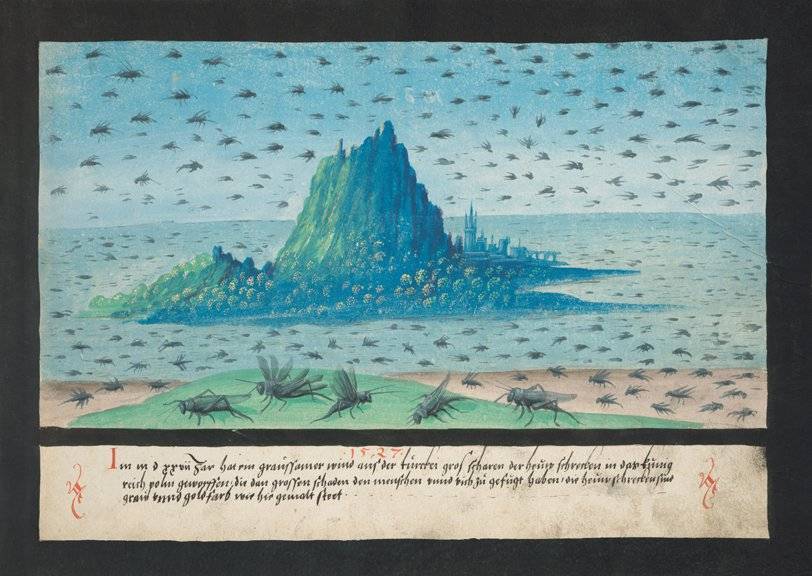 1527
Im m d xxvii Jar hat ein graussamer wind aus der türckei gros scharen der heuw schrecken in das küng
reich poln geworffen, die dan grossen schaden den menschen vnnd vich zů gefügt haben, die heuw schrecken sind
graw vnnd gold farb wie hie gemalt stett